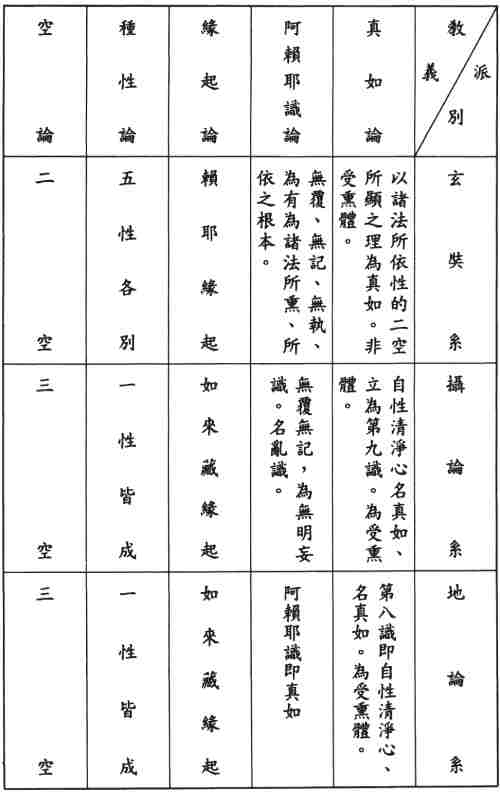 教義
派別
玄奘系
攝論系
地論系
真如論
以諸法所依性的二空
所顯之理為真如。非
受熏體。
自性清淨心名真如、
立為第九識。為受熏
體。
第八識即自性清淨心、
名真如。為受熏體。
阿賴耶識論
無覆、無記、無執、
為有為諸法所熏、所
依之根本。
無覆無記，為無明妄
識。名亂識。
阿賴耶識即真如
緣起論
賴耶緣起
如來藏緣起
如來藏緣起
種性論
五性各別
一性皆成
一性皆成
空論
二空
三空
三空